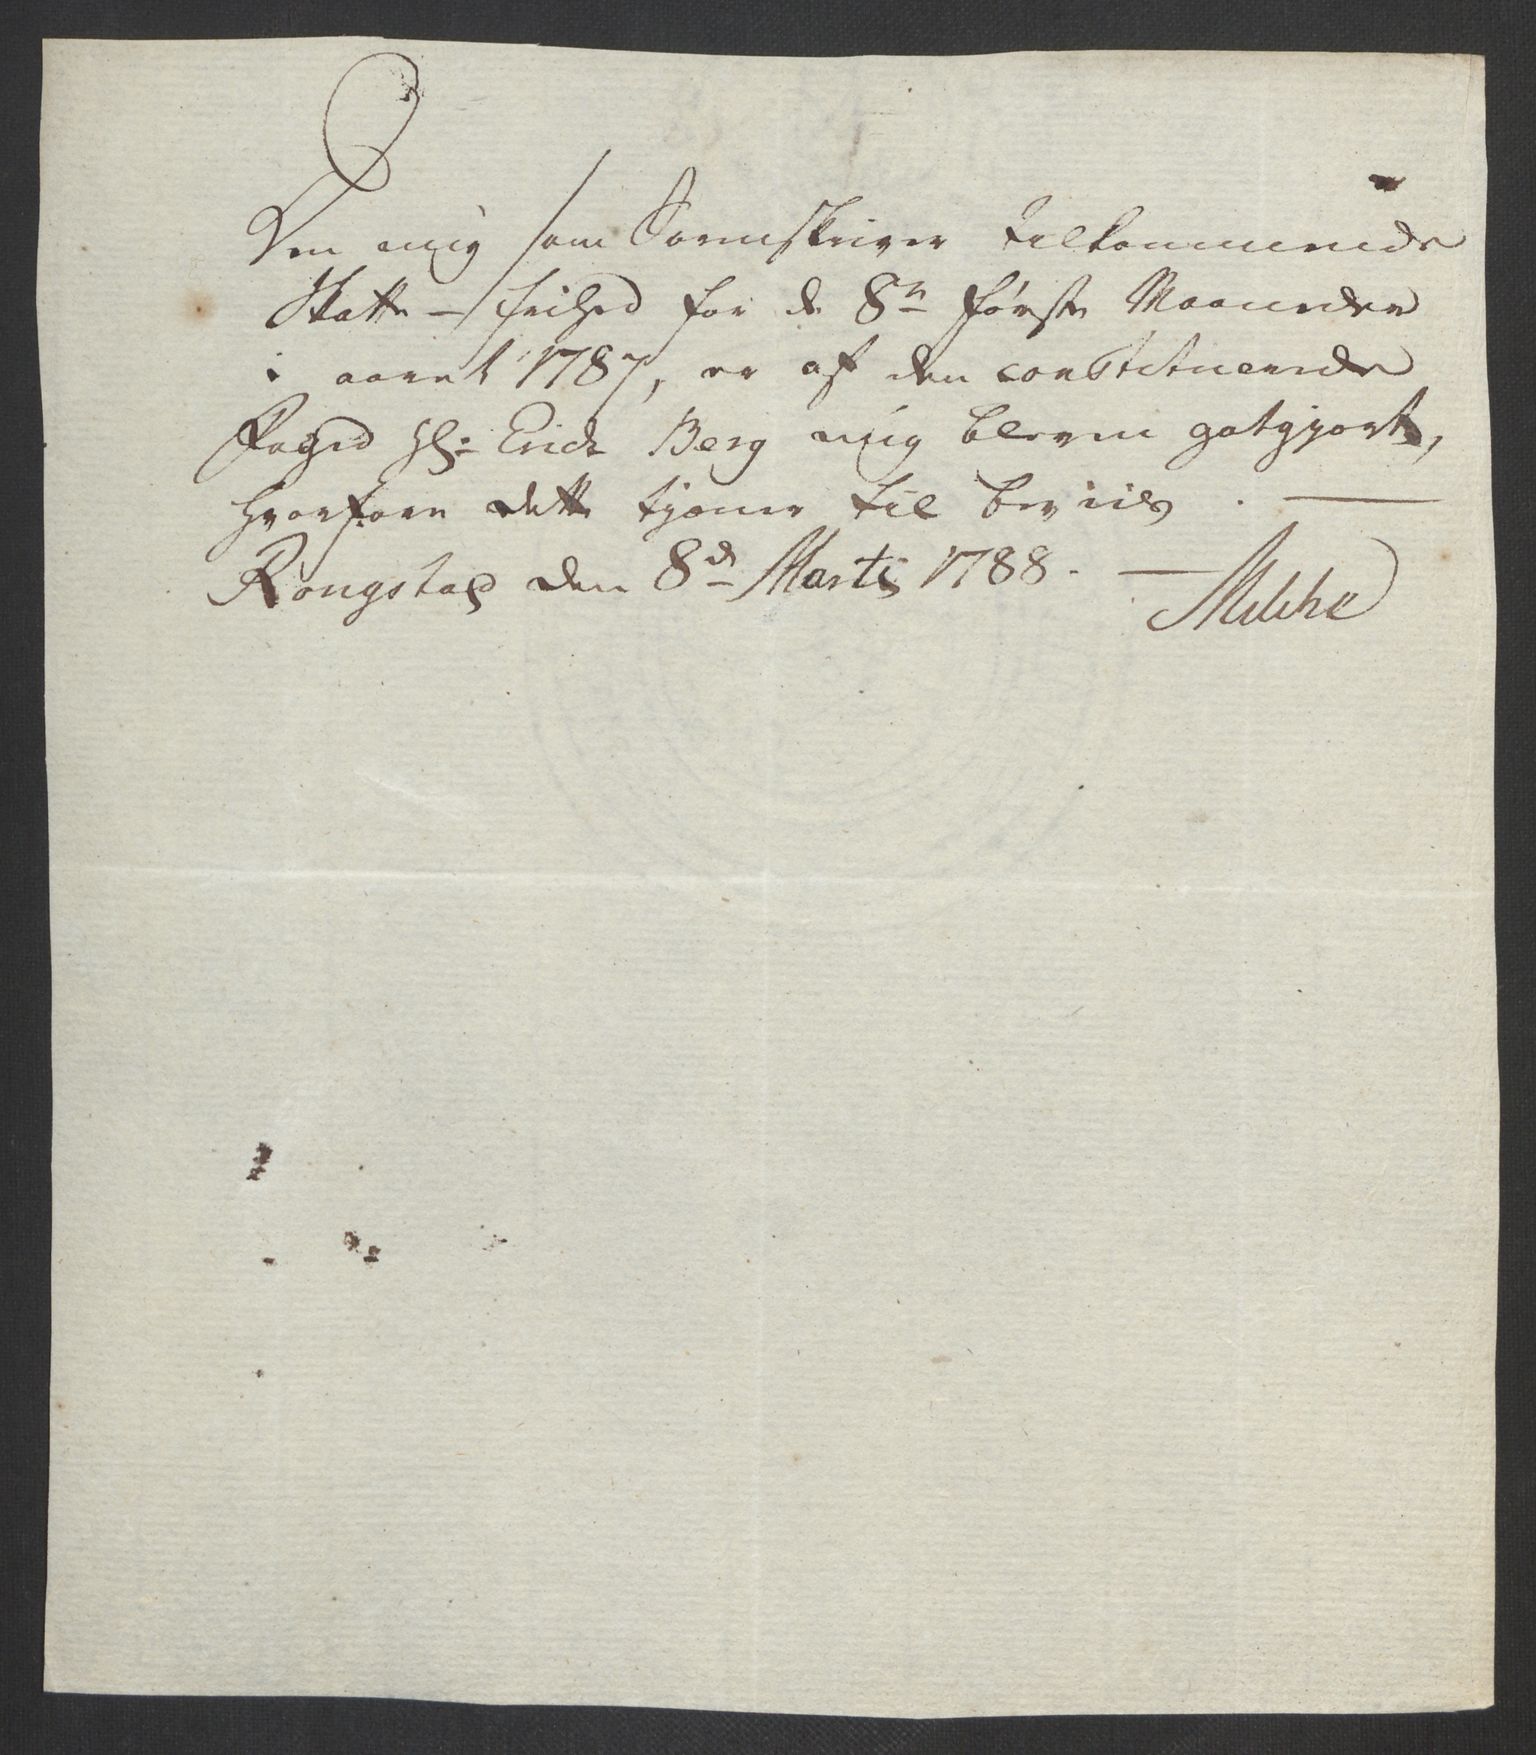 Den mig som Sorenskriver tilkommende
Skatte-frihed for de 8te første Maaneder
i aaret 1787, er af den constituerede
Foged Hr: Erick Berg mig bleven gotgjort,
hvorfore dette tjener til beviis. —
Rongstad den 8de Martj 1788. —